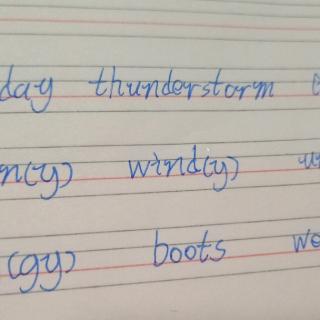 day thunderstorm
n(y) wind(y)
(gy) boots we